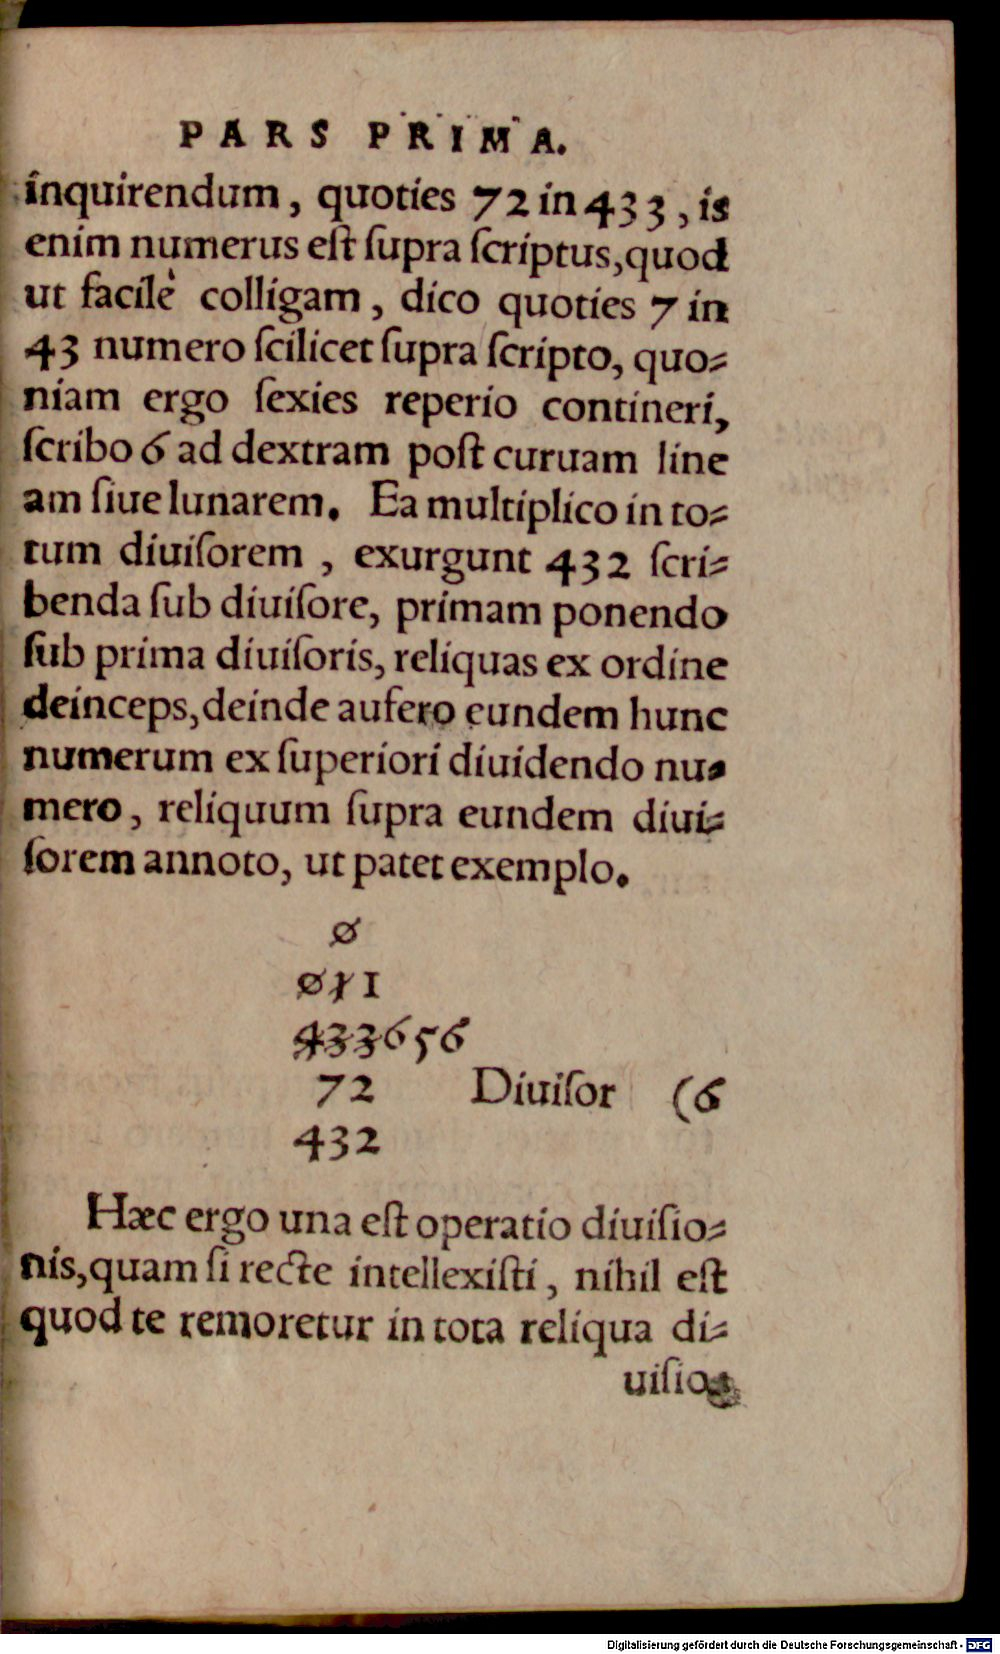 PARS PRIMA.
inquirendum, quoties 72 in 433, is
enim numerus eſt ſupra ſcriptus, quod
ut facilè colligam, dico quoties 7 in
43 numero ſcilicet ſupra ſcripto, quo⸗
niam ergo ſexies reperio contineri,
ſcribo 6 ad dextram poſt curuam line
am ſiue lunarem. Ea multiplico in to⸗
tum diuiſorem, exurgunt 432 ſcri⸗
benda ſub diuiſore, primam ponendo
ſub prima diuiſoris, reliquas ex ordine
deinceps, deinde aufero eundem hunc
numerum ex ſuperiori diuidendo nu⸗
mero, reliquum ſupra eundem diui⸗
ſorem annoto, ut patet exemplo.
0
011
433656
72 Diuiſor (6
432
Hæc ergo una eſt operatio diuiſio⸗
nis, quam ſi recte intellexiſti, nihil eſt
quod te remoretur in tota reliqua di⸗
uiſio⸗
Digitalisierung gefördert durch die Deutsche Forschungsgemeinschaft - DFG